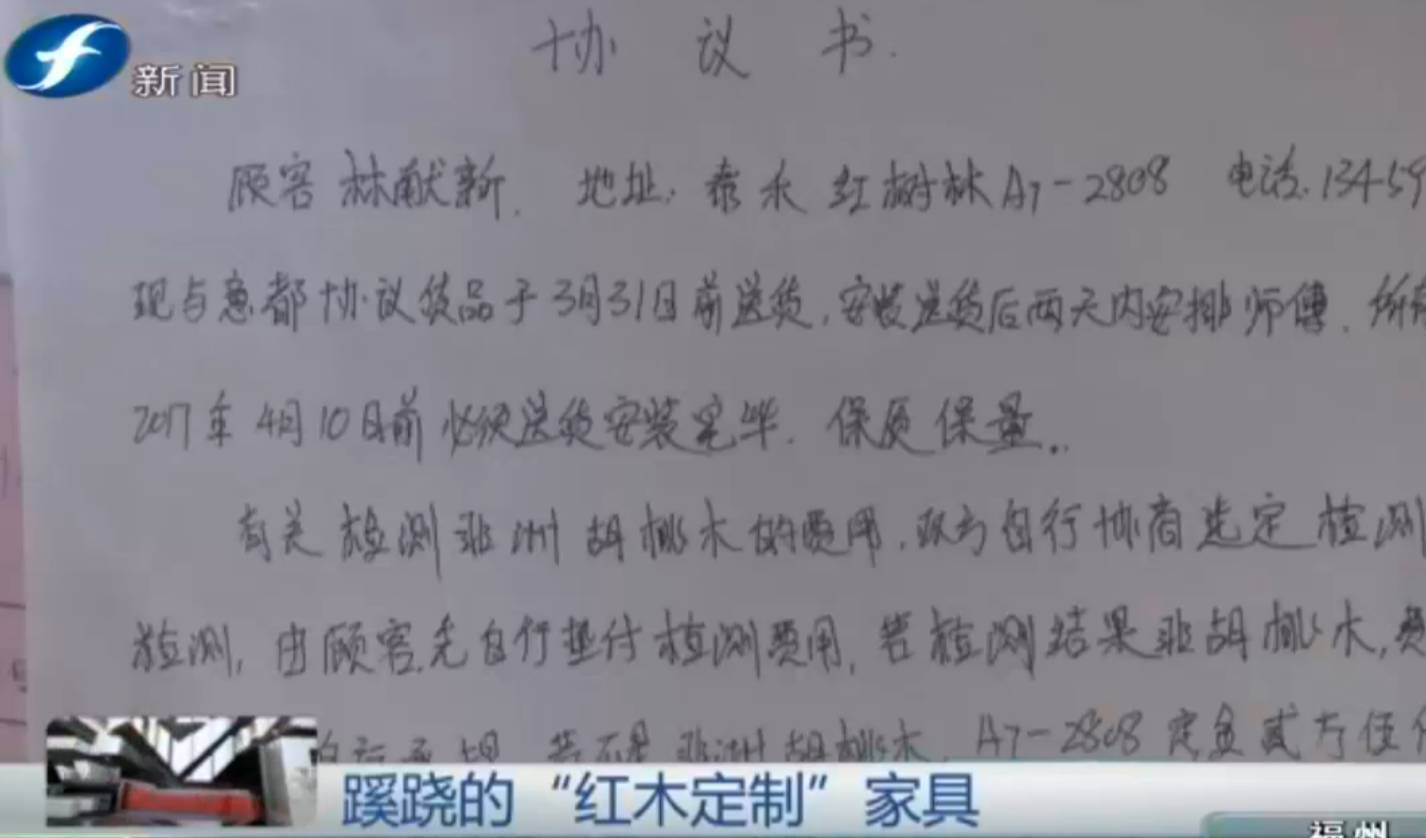 新闻
协议书.
顾客 林献新. 地址: 泰禾红树林A7-2808 电话.13459
现与意都协议货品于3月31日前送货,安装送货后两天内安排师傅.
2017年4月10日前必须送货安装完毕. 保质保量..
有关检测非洲胡桃木的费用,双方自行协商选定检测
检测,由顾客先自行垫付检测费用,若检测结果非胡桃木,费
若不是非洲胡桃木, A7-2808定金贰万伍
蹊跷的“红木定制”家具
福州